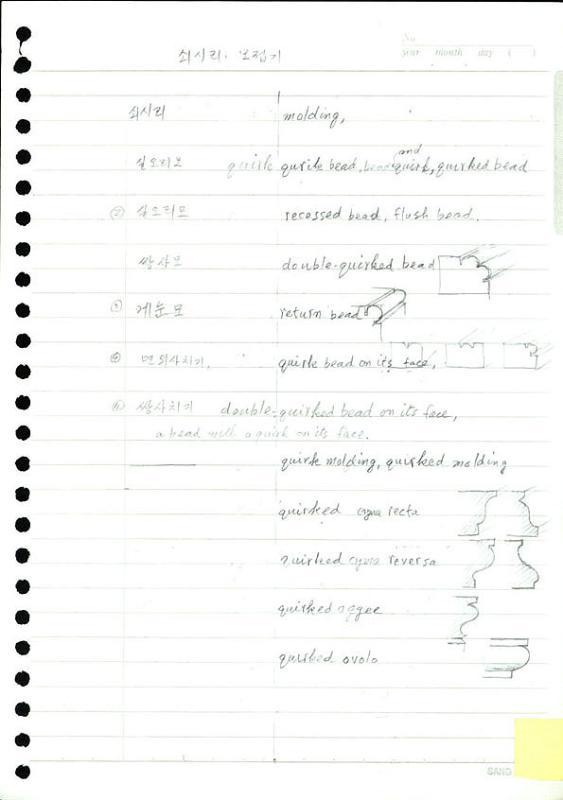 No
year month day ( )
쇠시리. 모접기
쇠시리 molding,
실오리모 quirk quirk bead, bead and quirk, quirked bead
② 실오리모 recessed bead, flush bead.
쌍사모 double-quirked bead
게눈모 return bead
면외사치기. quirk bead on its face,
쌍사치기 double-quirked bead on its face,
a bead with a quirk on its face.
quirk molding, quirked molding
quirked cyma recta
quirked cyma reversa
quirked oggee
quirked ovolo
SAND